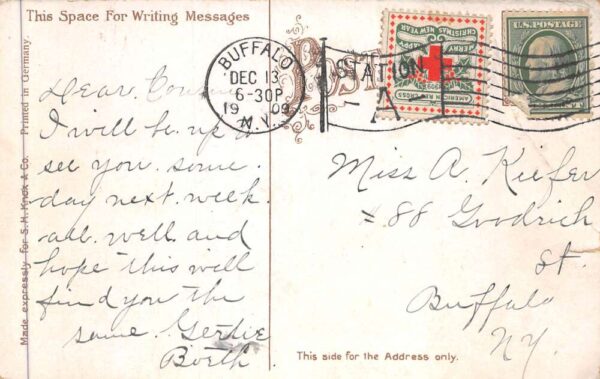 This Space For Writing Messages
Dear Cousin
I will be up to
see you. some.
day next week.
all. well. and
hope this will
find you the
same. Gertie
Boeth
Made expressly for S. H. Knox & Co. Printed in Germany.
POST
BUFFALO
DEC 13
6-30P
1909
N.Y.
STATION
A
MERRY CHRISTMAS
HAPPY NEW YEAR
AMERICAN RED CROSS
U.S. POSTAGE
Miss A. Kiefer
88 Goodrich
St.
Buffalo
NY.
This side for the Address only.